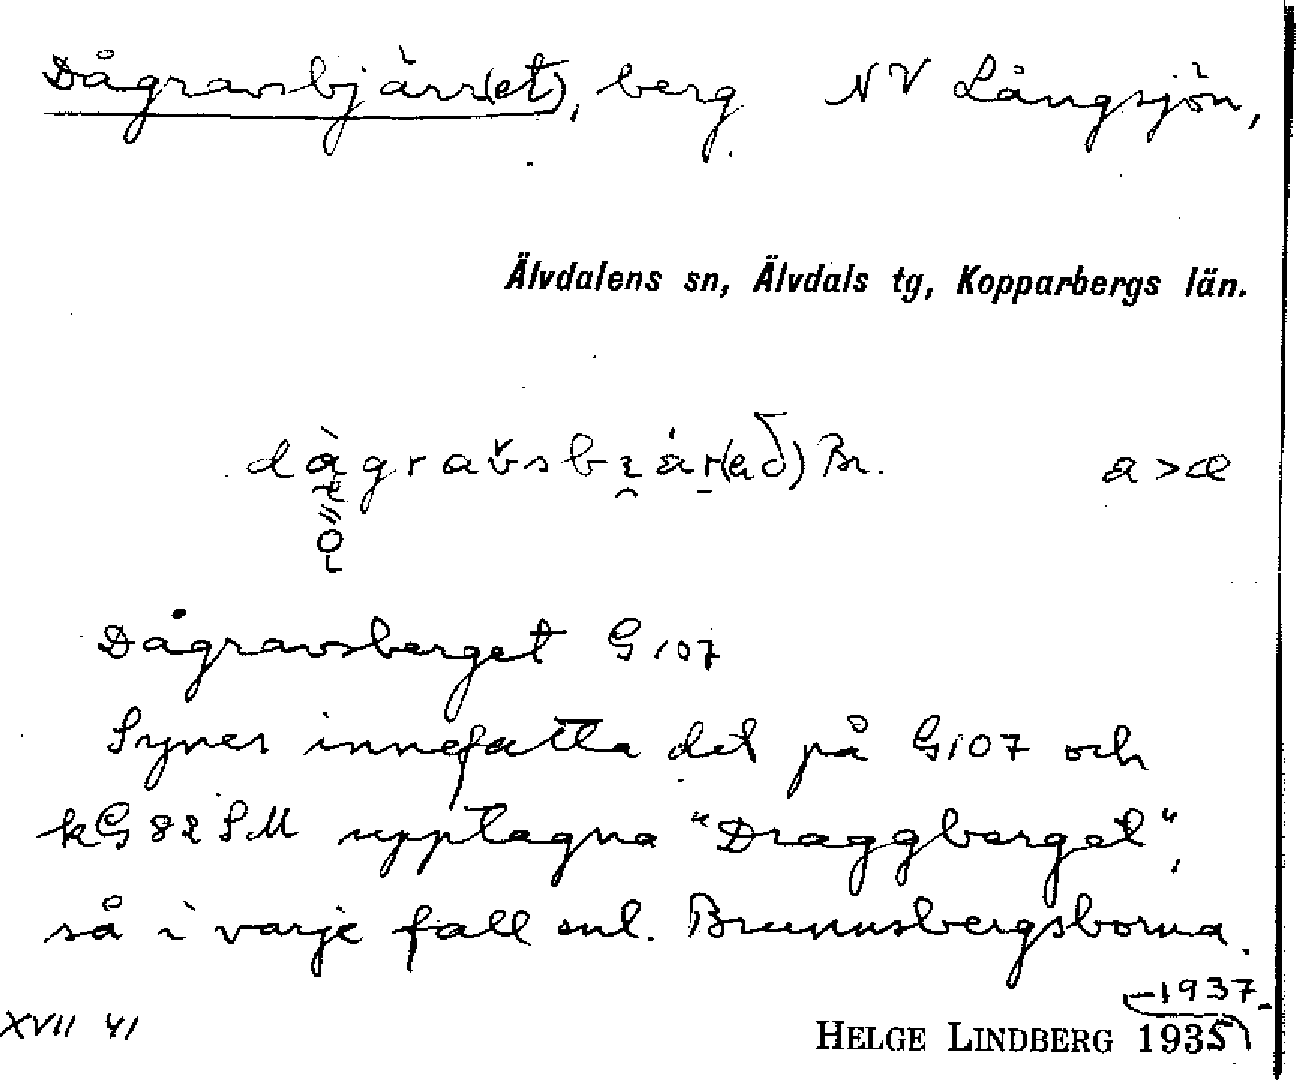 Dågravsbjärr(et), berg NV Långsjön,
Älvdalens sn, Älvdals tg, Kopparbergs län.
Br. a > æ
Dågravsberget G 107
Synes innefatta det på G107 och
kG 82 SM upptagna "Draggberget",
så i varje fall enl. Brunnsbergsborna.
-1937
XVII 41 HELGE LINDBERG 1935